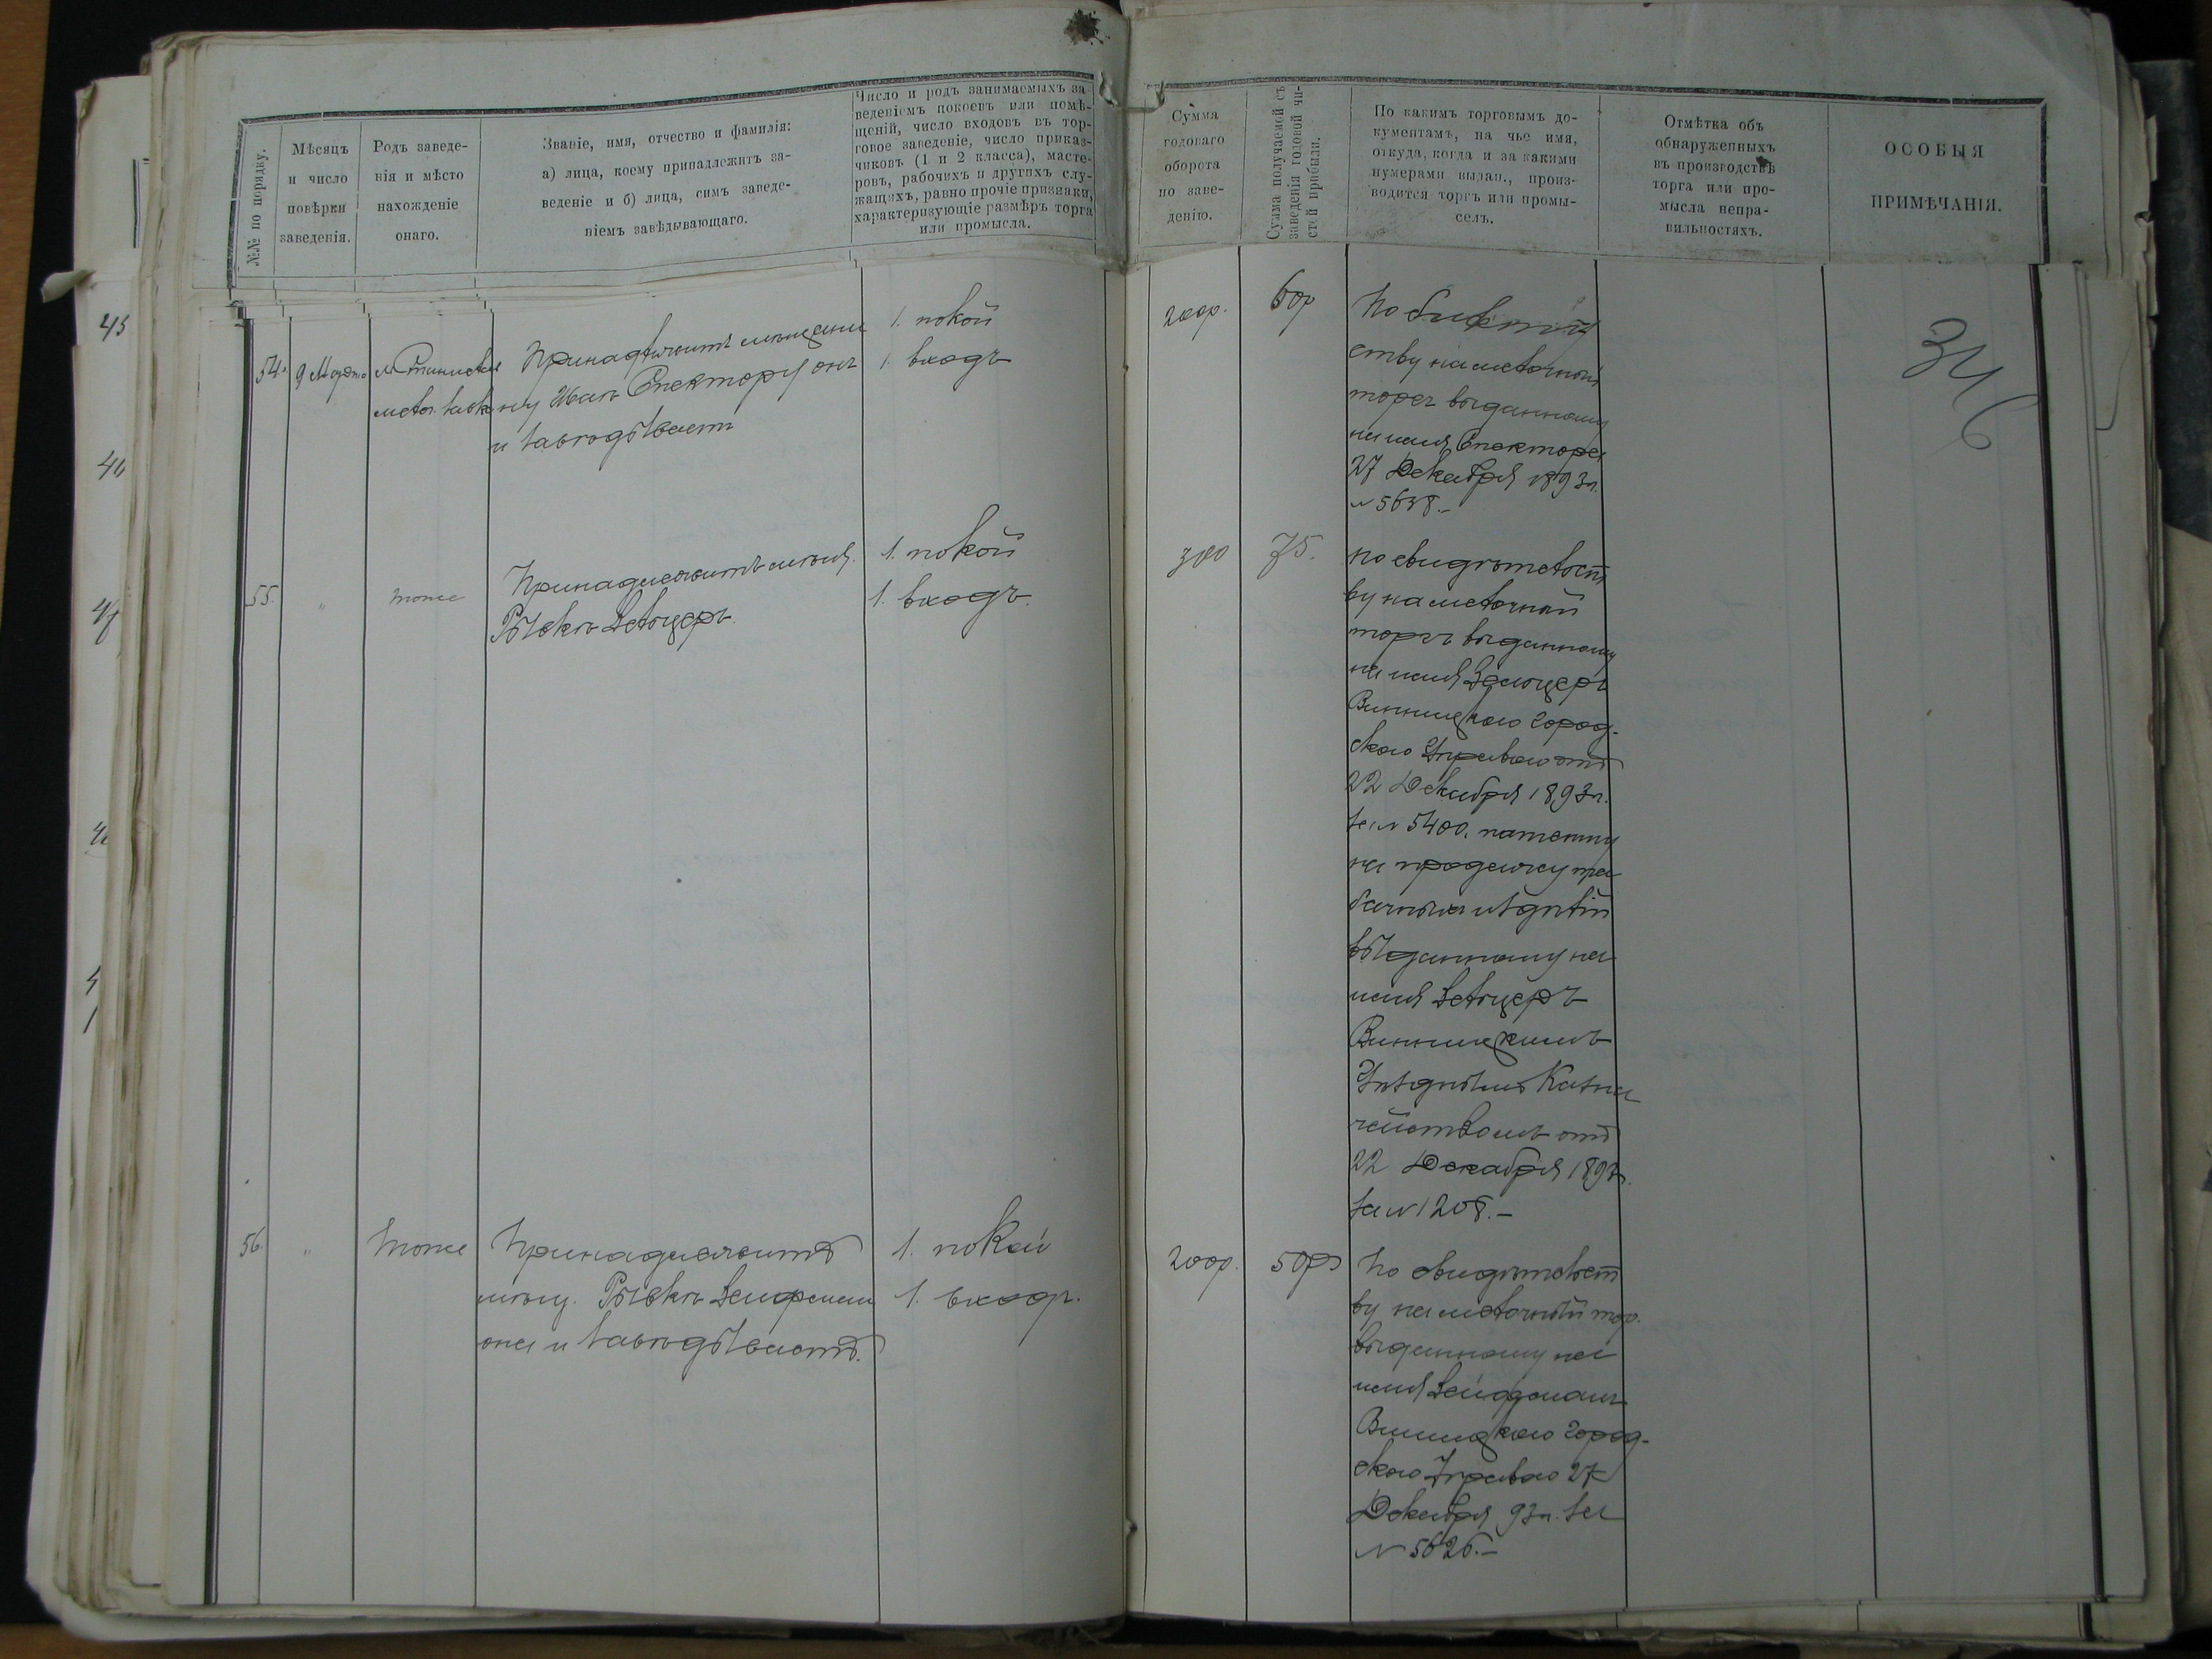 №№ по порядку.
Мѣсяцъ
и число
повѣрки
заведенія.
Родъ заведе-
нія и мѣсто
нахожденіе
онаго.
Званіе, имя, отчество и фамилія:
а) лица, коему принадлежитъ за-
веденіе и б) лица, симъ заведе-
ніемъ завѣдывающаго.
Число и родъ занимаемыхъ за-
веденіемъ покоевъ или помѣ-
щеній, число входовъ въ тор-
говое заведеніе, число приказ-
чиковъ (1 и 2 класса), масте-
ровъ, рабочихъ и другихъ слу-
жащихъ, равно прочіе признаки,
характеризующіе размѣръ торга
или промысла.
Сумма
годоваго
оборота
по заве-
денію.
Сумма получаемой съ
заведенія годовой чи-
стой прибыли.
По какимъ торговымъ до-
кументамъ, на чье имя,
откуда, когда и за какими
нумерами выдан., произ-
водится торгъ или промы-
селъ.
Отмѣтка объ
обнаруженныхъ
въ производствѣ
торга или про-
мысла непра-
вильностяхъ.
ОСОБЫЯ
ПРИМѢЧАНІЯ.
346
54.
9 Марта
мелоч. лавк
Принадлежитъ мѣщани
ну Спектору онъ
и завѣдываетъ
1. покой
1. входъ
200р.
60р
По
ству на мелочный
торгъ выданному
на имя Спектора
27 Декабря 1893г.
№ 5638.-
55.
"
тоже
Принадлежитъ мѣщ.
Рывкѣ Зельцеръ
1. покой
1. входъ.
300
75.
По свидѣтельст
ву на мелочный
торгъ выданному
на имя Зельцеръ
Винницкою город-
скою Управою отъ
22 Декабря 1893г.
за № 5400, патенту
на продажу та
бачныхъ издѣлій
выданному на
имя Зельцеръ
Винницкимъ
Уѣзднымъ Казна
чействомъ отъ
22 Декабря 1893г.
за № 1208.-
56.
"
тоже
Принадлежитъ
мѣщ. Рывкѣ
она и завѣдываетъ.
1. покой
1. входъ.
200р.
50р
По свидѣтельст
ву на мелочный тор.
выданному на
имя
Винницкою город-
скою Управою 27
Декабря 93г. за
№ 5626.-
45